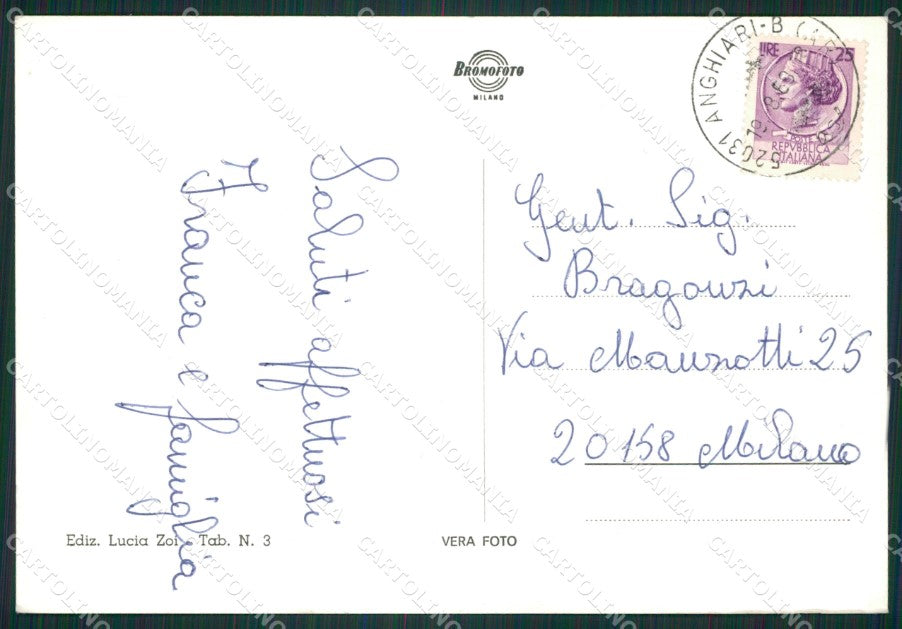 BROMOFOTO
MILANO
Saluti affettuosi
Franca e famiglia
Ediz. Lucia Zoi - Tab. N. 3
VERA FOTO
52031 ANGHIARI-B (AR)
LIRE 25
POSTE
REPVBBLICA
ITALIANA
Gent. Sig.
Bragonzi
Via Mausnotti 25
20158 Milano
CARTOLINOMANIA